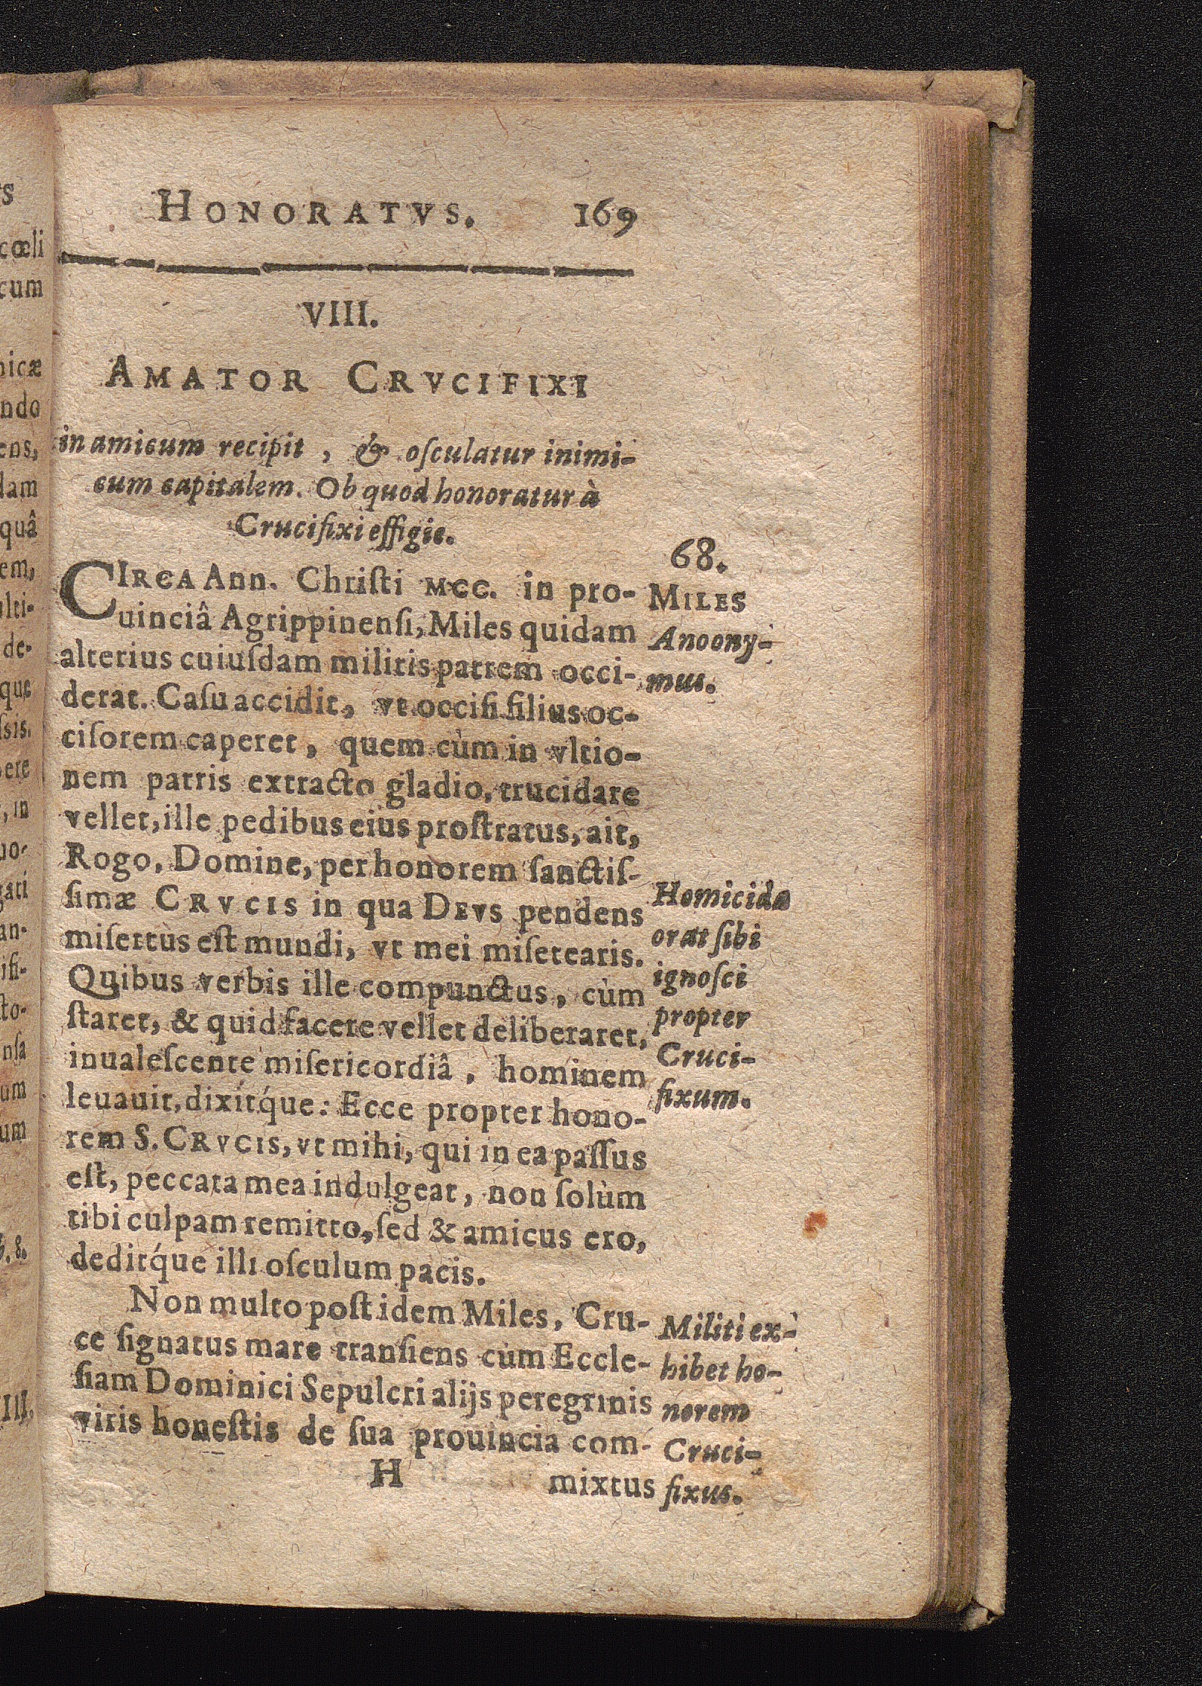 HONORATVS. 169
VIII.
AMATOR CRVCIFIXI
in amicum recipit, & oſculatur inimi-
cum capitalem. Ob quod honoratur à
Crucifixi effigie.
CIRCA Ann. Chriſti MCC. in pro-
uinciâ Agrippinenſi, Miles quidam
alterius cuiuſdam militis patrem occi-
derat. Caſu accidit, vt occiſi filius oc-
ciſorem caperet, quem cùm in vltio-
nem patris extracto gladio, trucidare
vellet, ille pedibus eius proſtratus, ait,
Rogo, Domine, per honorem ſanctiſ-
ſimæ CRVCIS in qua DEVS pendens
miſertus eſt mundi, vt mei miſerearis.
Quibus verbis ille compunctus, cùm
ſtaret, & quid facere vellet deliberaret,
inualeſcente miſericordiâ, hominem
leuauit, dixitq́ue: Ecce propter hono-
rem S. CRVCIS, vt mihi, qui in ea paſſus
eſt, peccata mea indulgeat, non ſolùm
tibi culpam remitto, ſed & amicus ero,
deditq́ue illi oſculum pacis.
Non multo poſt idem Miles, Cru-
ce ſignatus mare tranſiens cùm Eccle-
ſiam Dominici Sepulcri alijs peregrinis
viris honeſtis de ſua prouincia com-
H mixtus
68.
MILES
Anoony-
mus.
Homicida
orat ſibi
ignoſci
propter
Cruci-
fixum.
Militi ex-
hibet ho-
norem
Cruci-
fixus.
cœli
cum